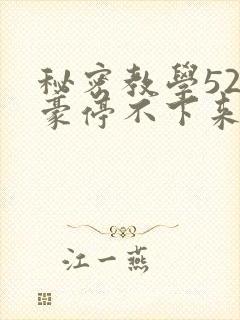 秘密教學52
豪停不下来
江一燕